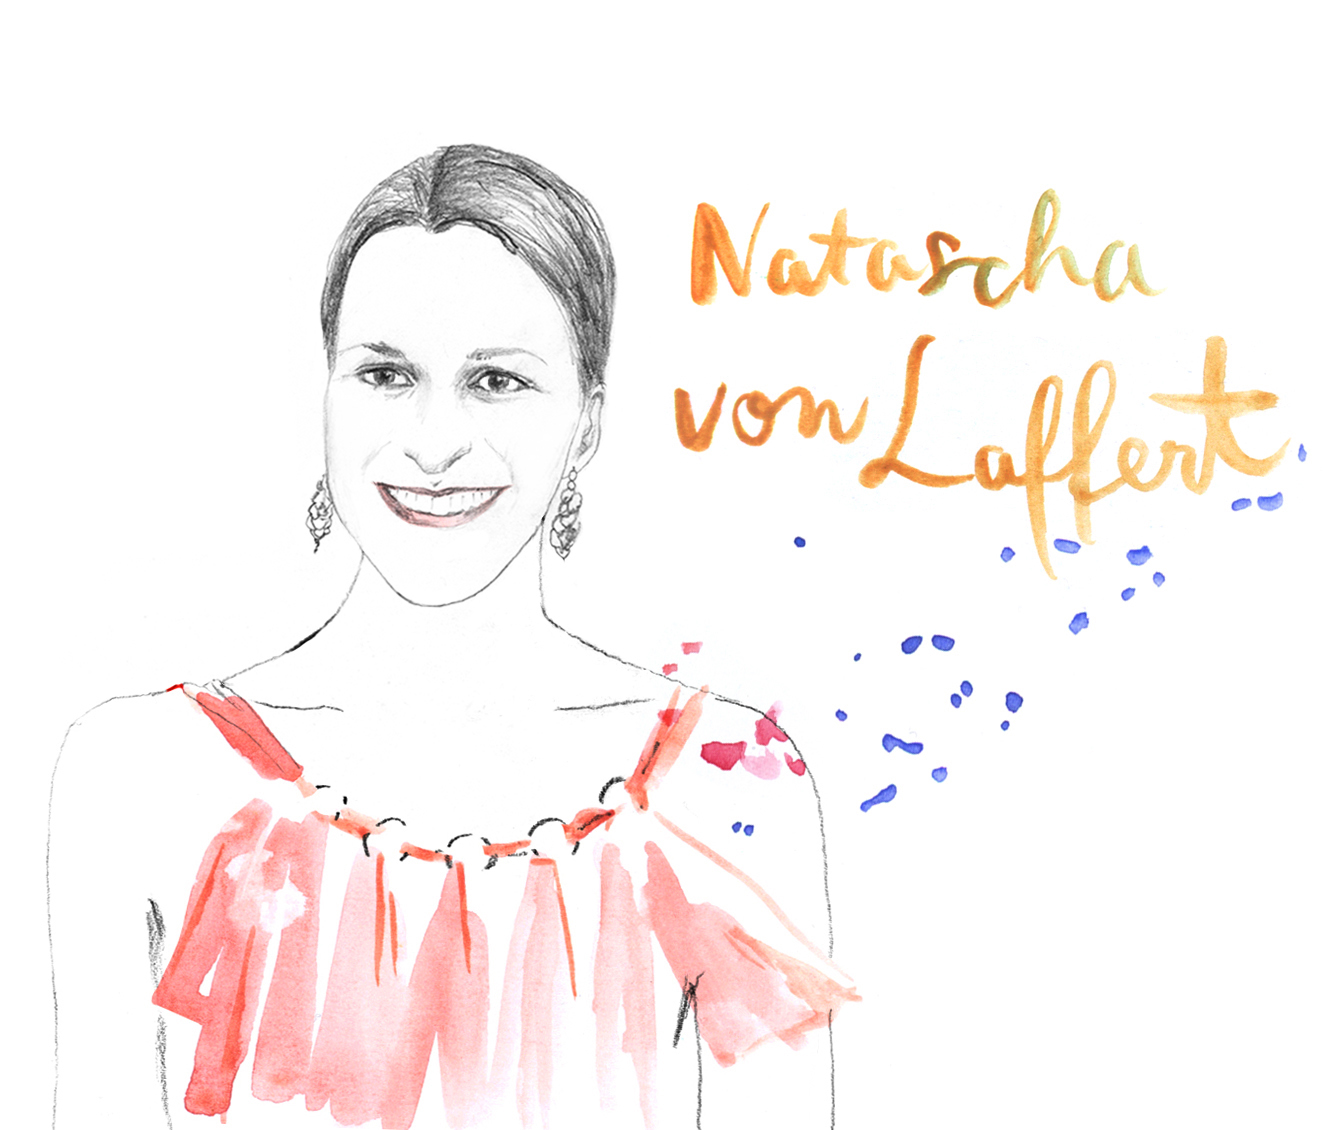 Natascha
von Laffert